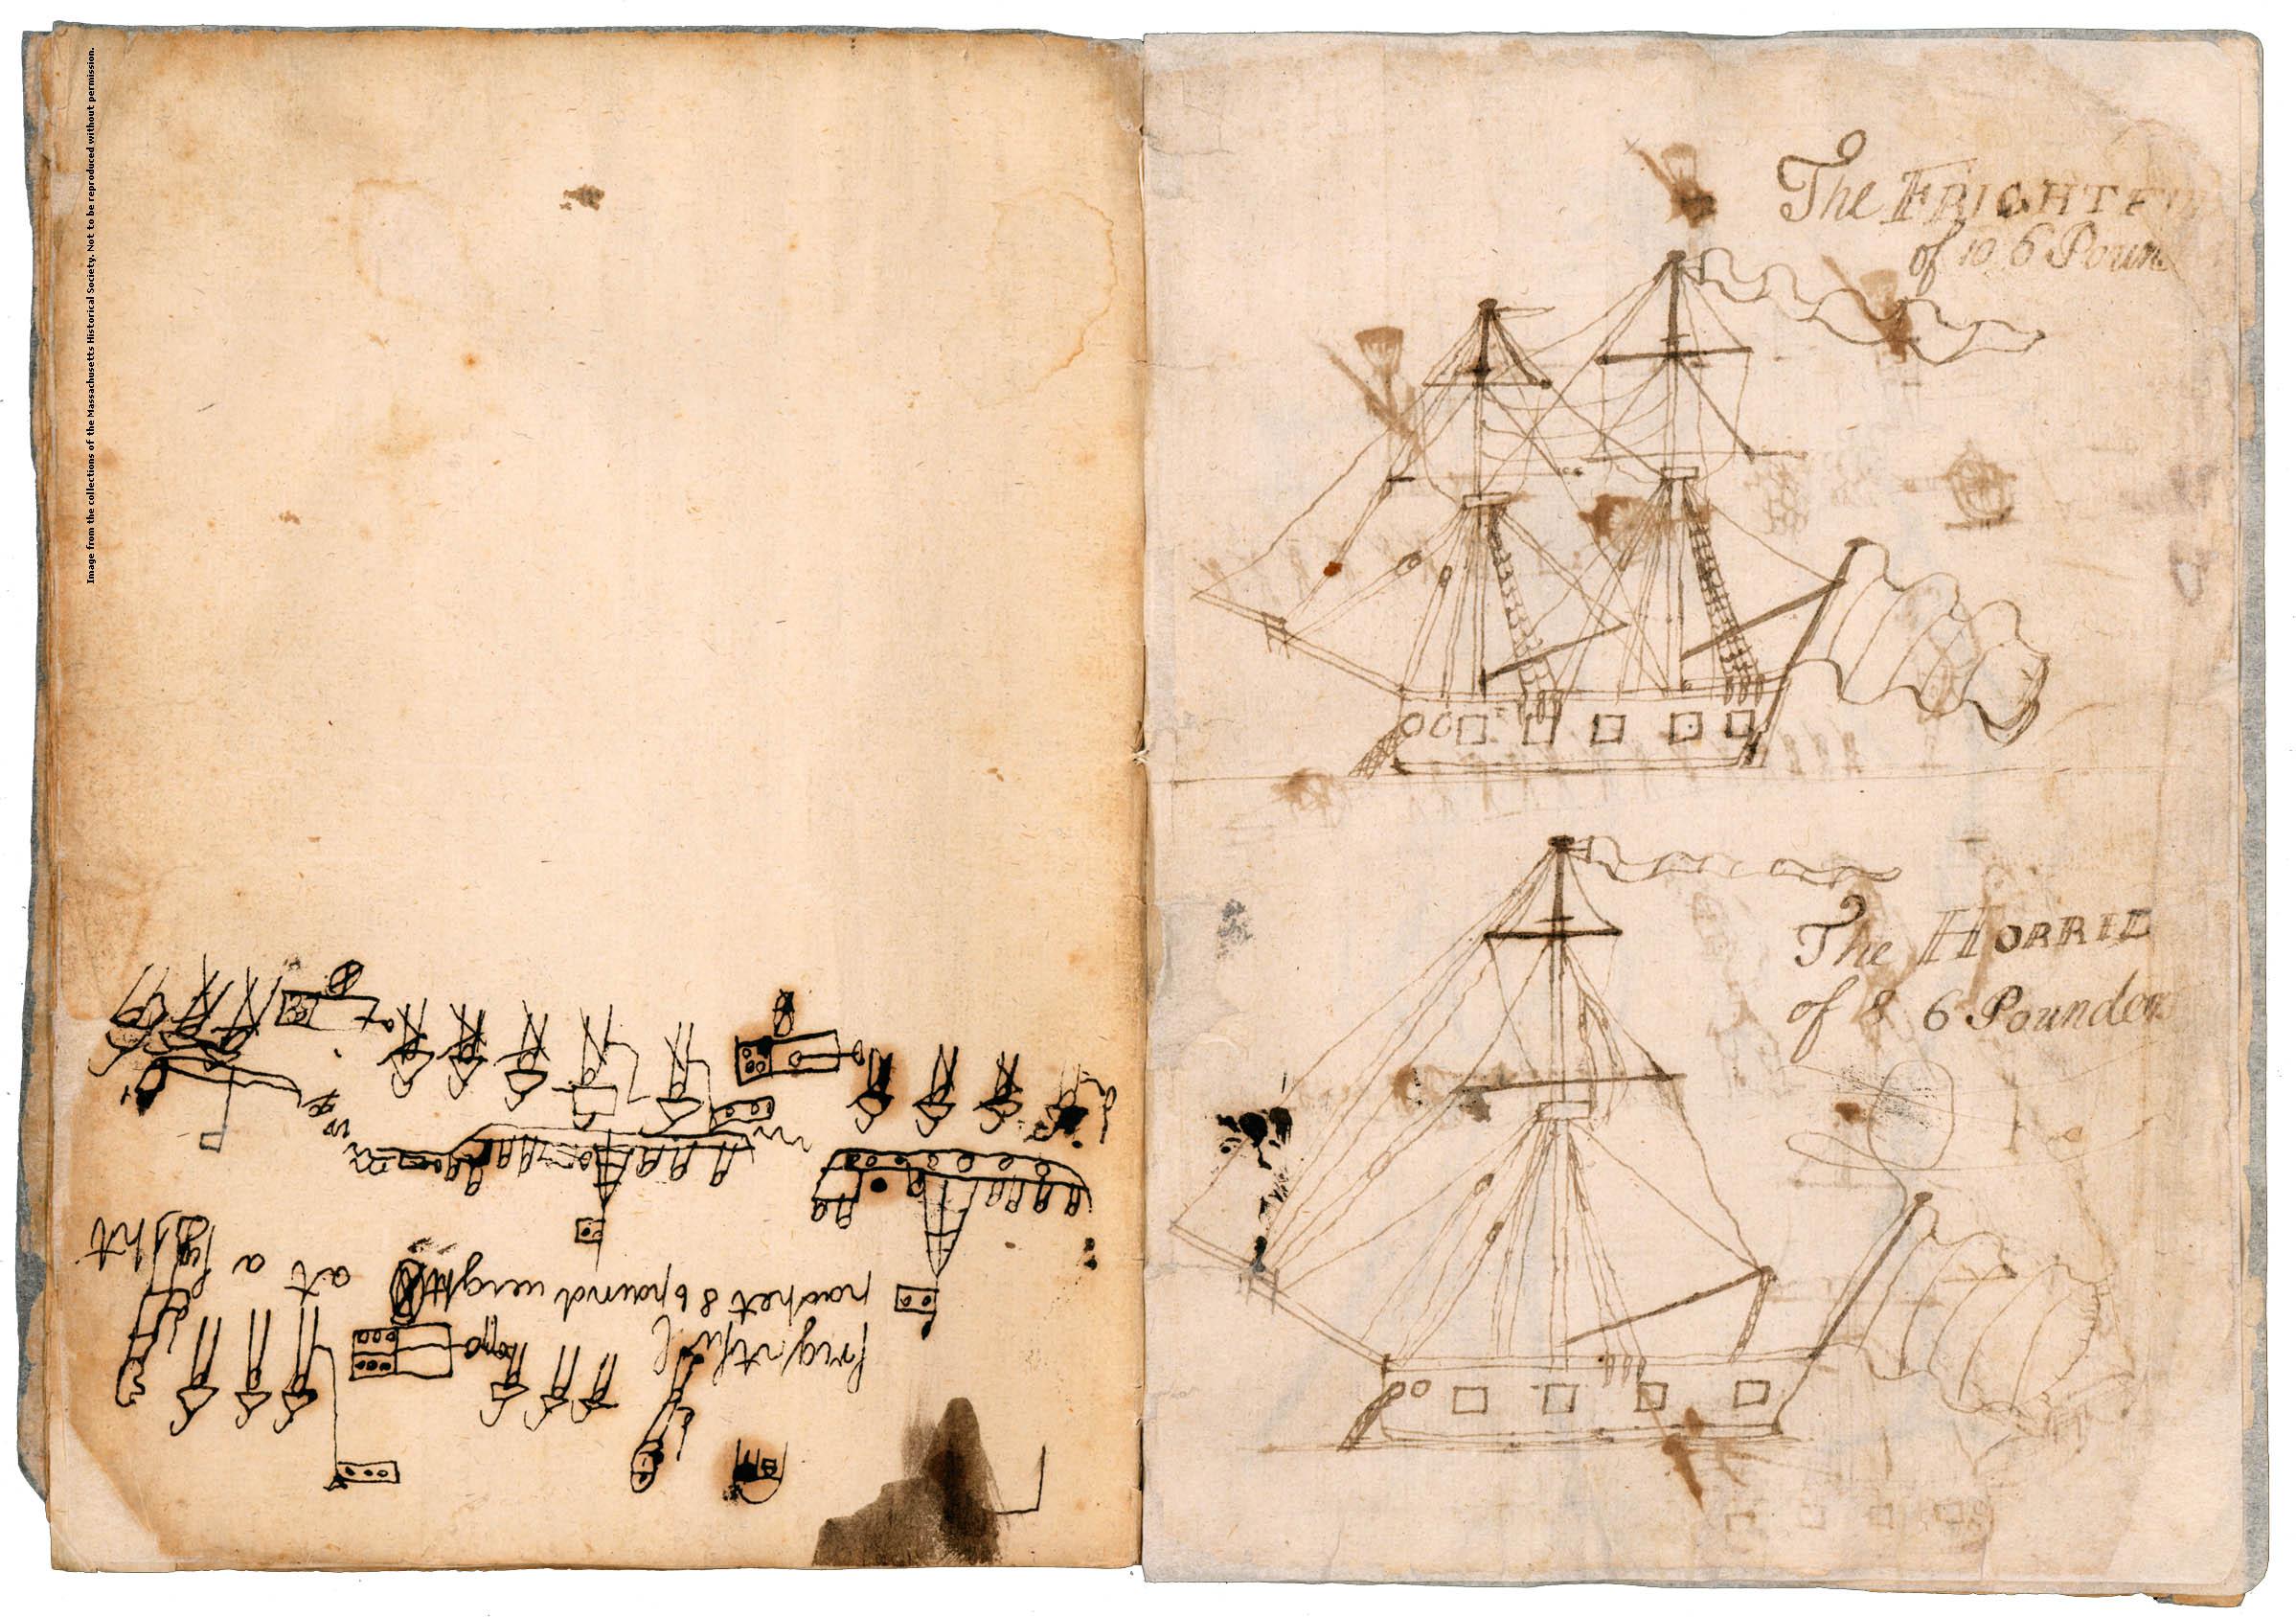 Image from the collections of the Massachusetts Historical Society. Not to be reproduced without permission.
frightfull
8 6 pound weight at a
The FRIGHTF
of 10 6 Poun
The HORRIE
of 8 6 Pounders